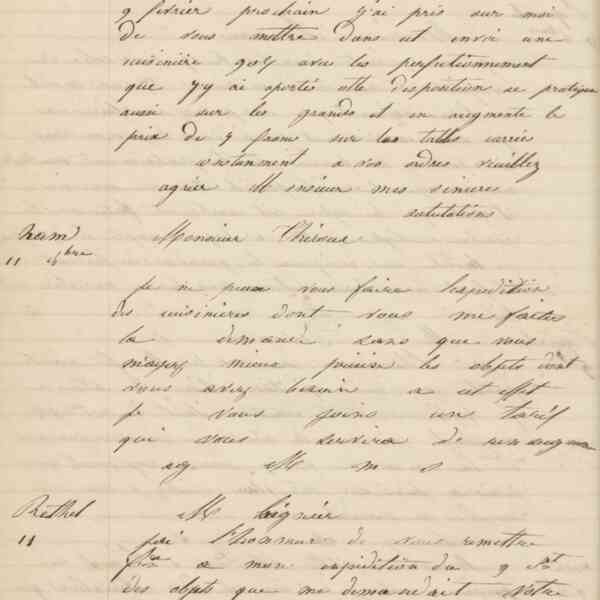 9 février prochain j'ai pris sur moi
de vous mettre dans cet envoi une
cuisinière avec les perfectionnement
que j'y ai aportés cette disposition se pratique
aussi sur les grandes et en augmente le
prix de 7 francs sur les tailles carrée
constanment a vos ordres veuillez
agréer Monsieur mes sincères
salutations
ham
11
Monsieur
Je ne peux vous faire l'expedition
des cuisinieres dont vous me faites
la demande sans que vous
m'ayez mieux les objets dont
vous avez besoin a cet effet
Je vous joins un tarif
qui vous servira de
ag M m s
Rethel
11
M Lignier
J'ai l'honneur de vous remettre
fre a mon expedition du 9 ct
des objets que me demandait votre